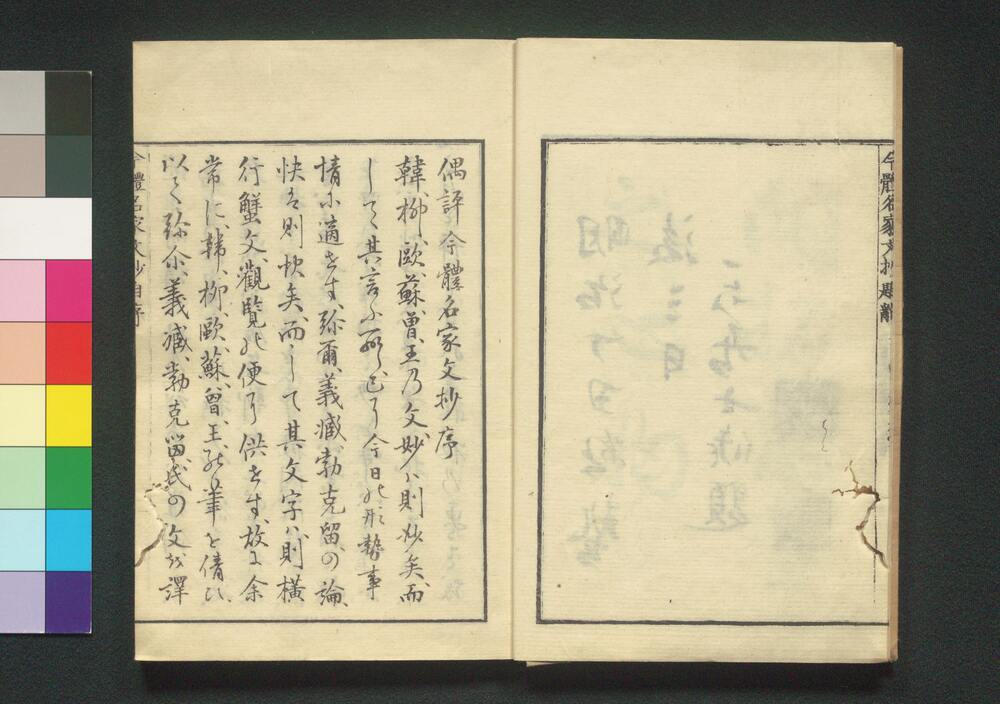 今體名家文抄題辭
偶評今體名家文抄序
韓、柳、歐、蘇、曾、王乃文、妙ハ則妙矣、而
して其言ふ所しと今日の形勢事
情に適せず、弥爾、義臧、勃克留の論、
快は則快矣、而して其文字ハ則橫
行蟹文、觀覽の便に供せず、故に余
常に、韓、柳、歐、蘇、曾、王、の筆を倩ひ、
以て弥尓、義臧、勃克留氏の文を譯
今體名家文抄自序